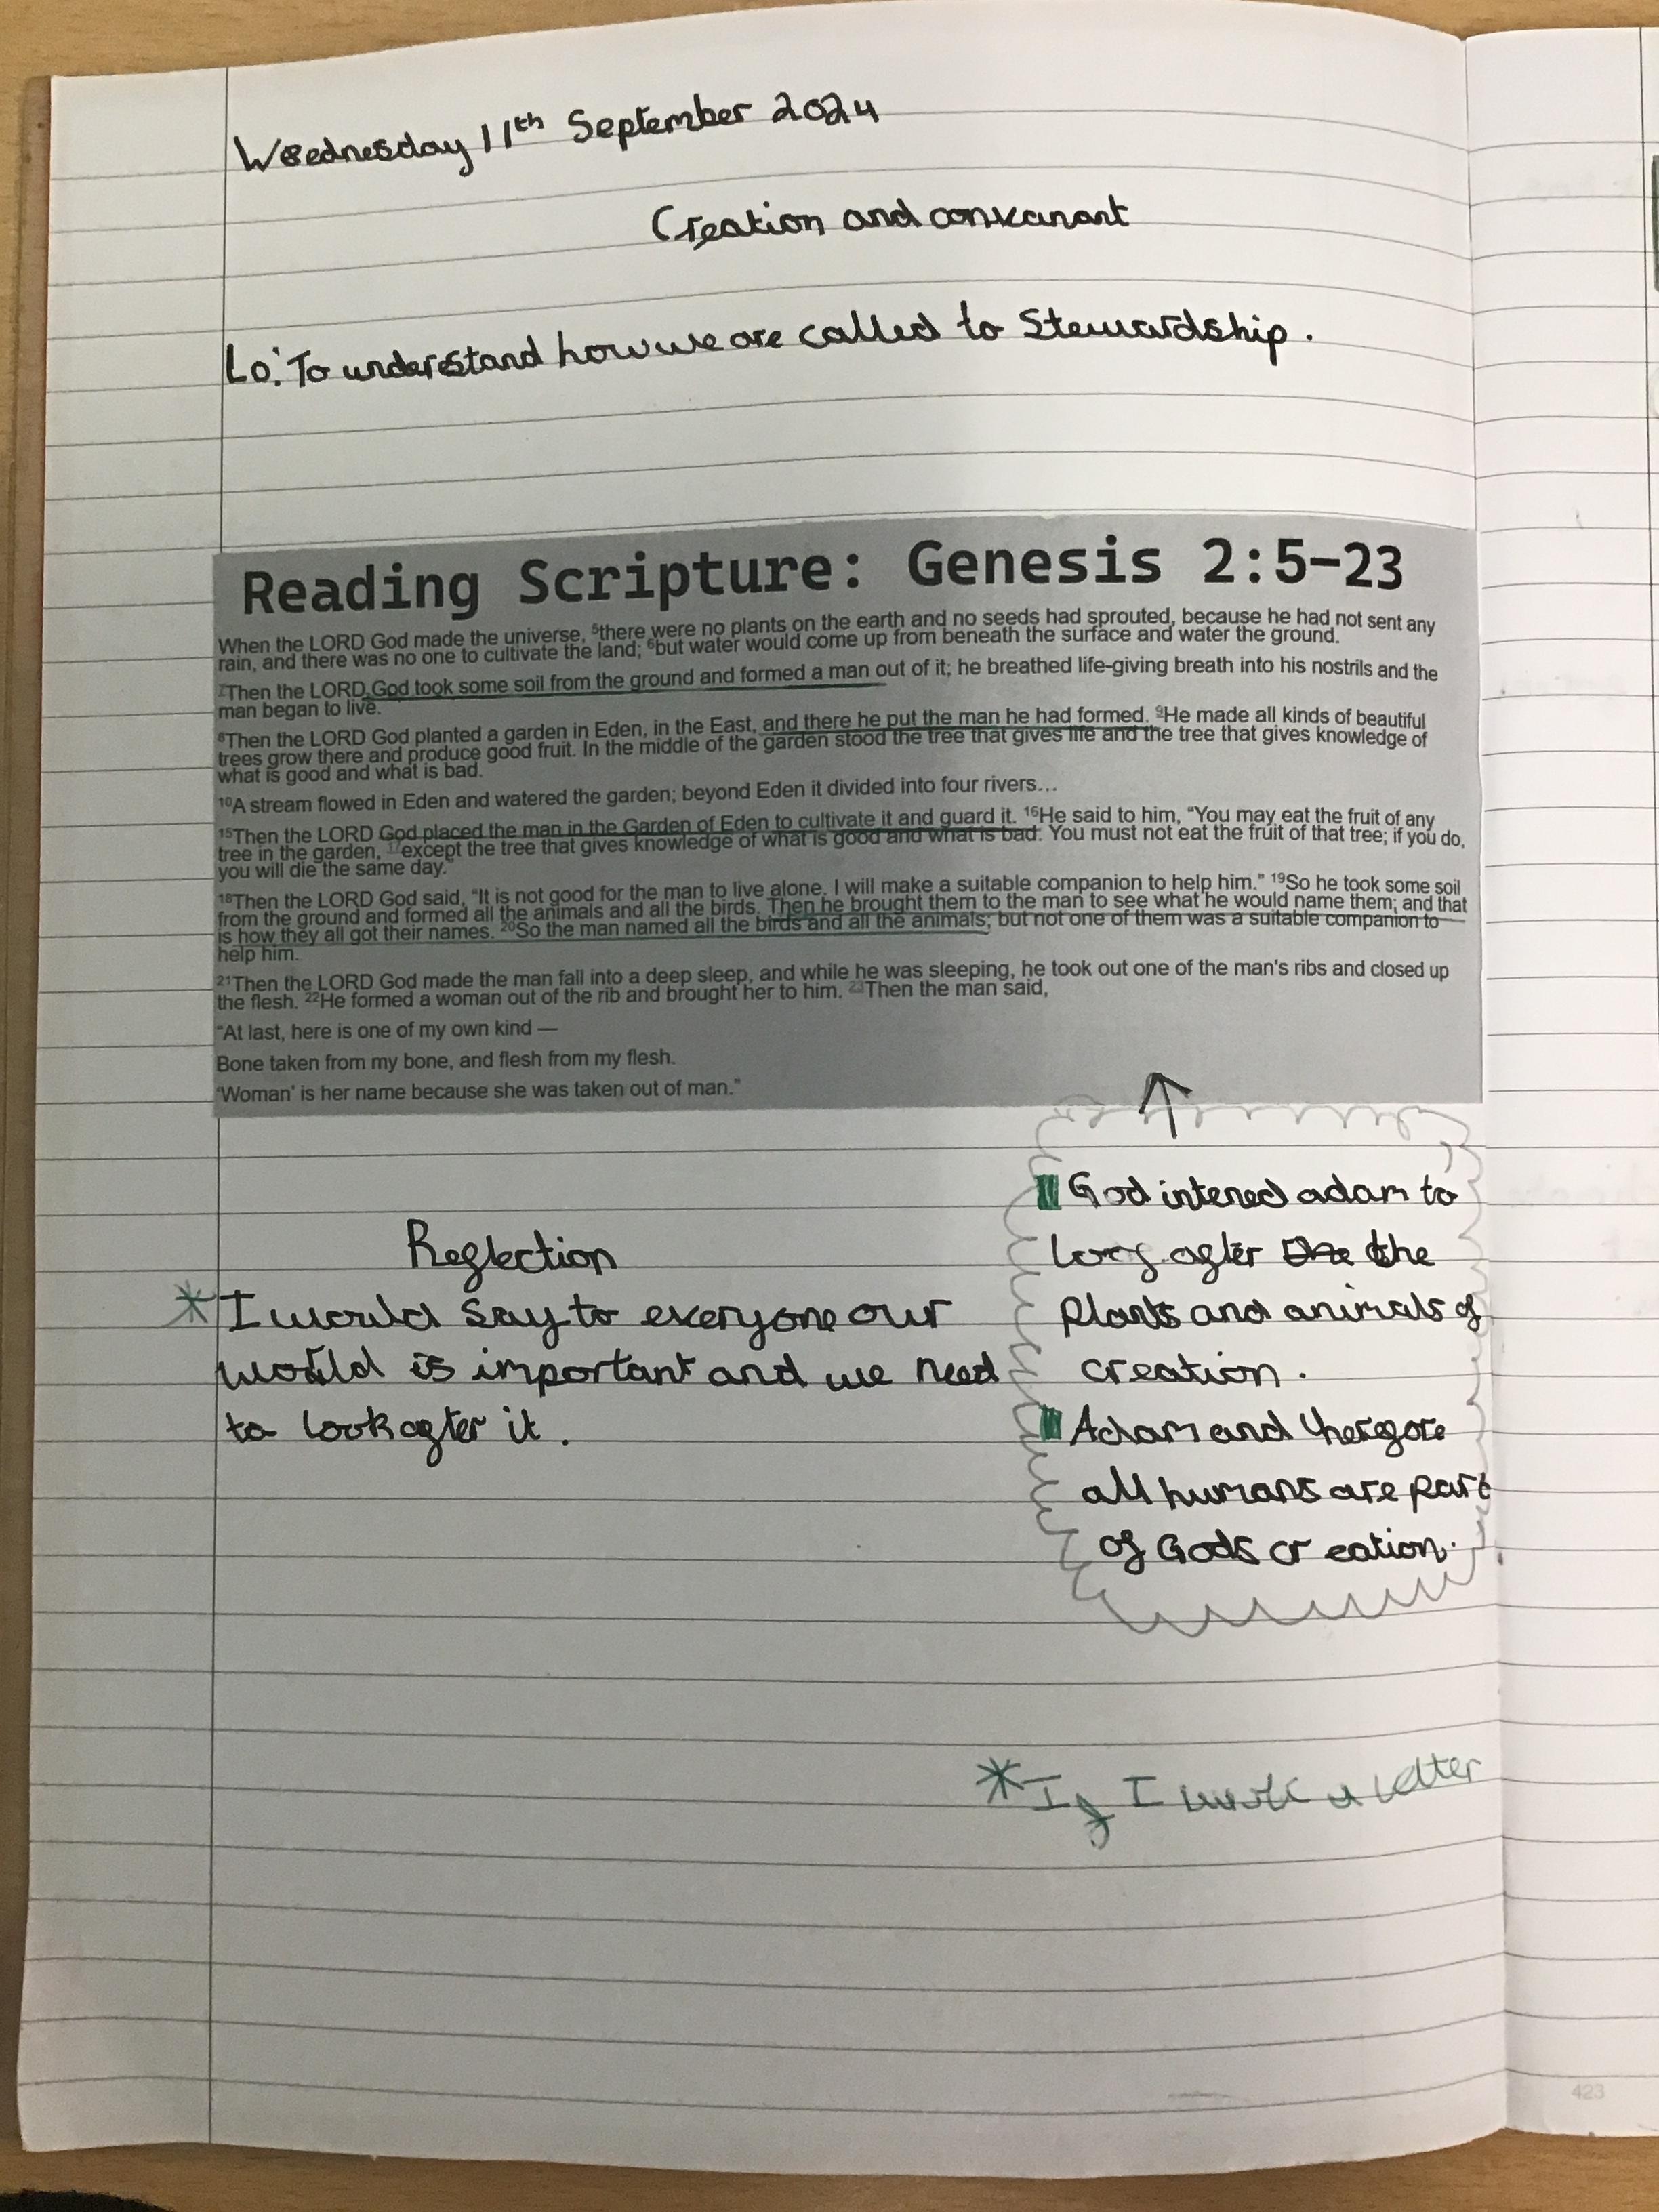 Wednesday 11th September 2024
Creation and convanant
Lo: To understand how we are called to Stewardship.
Reading Scripture: Genesis 2:5-23
When the LORD God made the universe, ⁵there were no plants on the earth and no seeds had sprouted, because he had not sent any
rain, and there was no one to cultivate the land; ⁶but water would come up from beneath the surface and water the ground.
⁷Then the LORD God took some soil from the ground and formed a man out of it; he breathed life-giving breath into his nostrils and the
man began to live.
⁸Then the LORD God planted a garden in Eden, in the East, and there he put the man he had formed. ⁹He made all kinds of beautiful
trees grow there and produce good fruit. In the middle of the garden stood the tree that gives life and the tree that gives knowledge of
what is good and what is bad.
¹⁰A stream flowed in Eden and watered the garden; beyond Eden it divided into four rivers...
¹⁵Then the LORD God placed the man in the Garden of Eden to cultivate it and guard it. ¹⁶He said to him, “You may eat the fruit of any
tree in the garden, ¹⁷except the tree that gives knowledge of what is good and what is bad. You must not eat the fruit of that tree; if you do,
you will die the same day.”
¹⁸Then the LORD God said, “It is not good for the man to live alone. I will make a suitable companion to help him.” ¹⁹So he took some soil
from the ground and formed all the animals and all the birds. Then he brought them to the man to see what he would name them; and that
is how they all got their names. ²⁰So the man named all the birds and all the animals; but not one of them was a suitable companion to
help him.
²¹Then the LORD God made the man fall into a deep sleep, and while he was sleeping, he took out one of the man's ribs and closed up
the flesh. ²²He formed a woman out of the rib and brought her to him. ²³Then the man said,
“At last, here is one of my own kind —
Bone taken from my bone, and flesh from my flesh.
‘Woman’ is her name because she was taken out of man.”
God intened adam to
after the
plants and animals of
creation.
Adam and therefore
all humans are part
of Gods creation.
Reflection
*I would say to everyone our
world is important and we need
to look after it.
*If I a letter
423